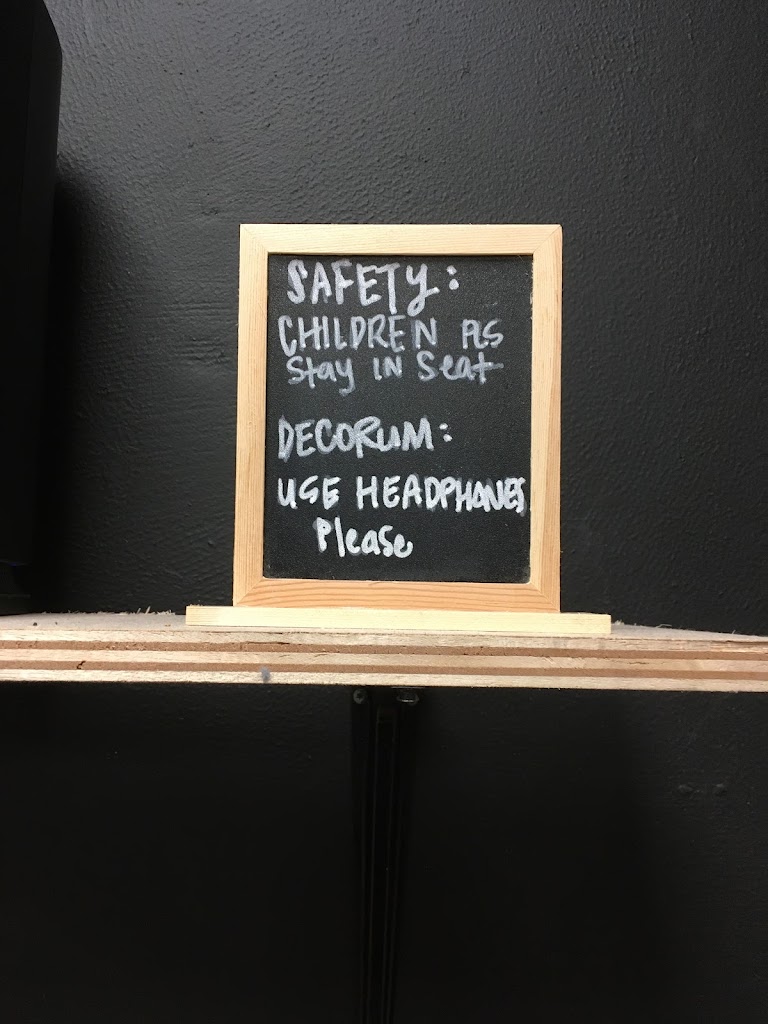 SAFETY:
CHILDREN PLS
Stay IN Seat
DECORUM:
USE HEADPHONES
Please